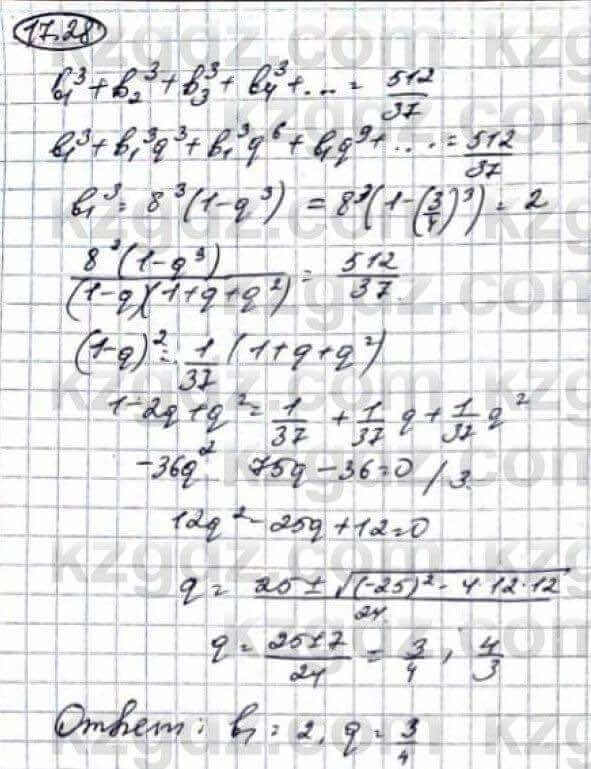 17.28
b₁³ + b₂³ + b₃³ + b₄³ + ... = 512/37
b₁³ + b₁³q³ + b₁³q⁶ + b₁q⁹ + ... = 512/37
b₁³ = 8³(1-q³) = 8³(1-(3/4)³) = 2
8³(1-q³)/((1-q)(1+q+q²)) = 512/37
(1-q)² = 1/37 (1+q+q²)
1-2q+q² = 1/37 + 1/37 q + 1/37 q²
-36q² 75q - 36 = 0 / 3
12q² - 25q + 12 = 0
q = 25 ± √((-25)² - 4·12·12)/24
q = 25±7/24 = 3/4, 4/3
Ответ: b₁ = 2, q = 3/4
kzgdz.com